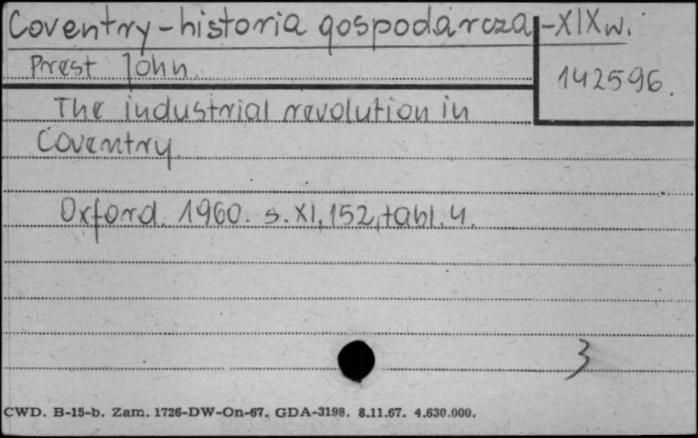 Coventry - historia gospodarcza - XIX w.
Prest John
142596.
The industrial revolution in
Coventry
Oxford. 1960. s. XI, 152, tabl. 4.
3
CWD. B-15-b. Zam. 1726-DW-On-67. GDA-3198. 8.11.67. 4.630.000.